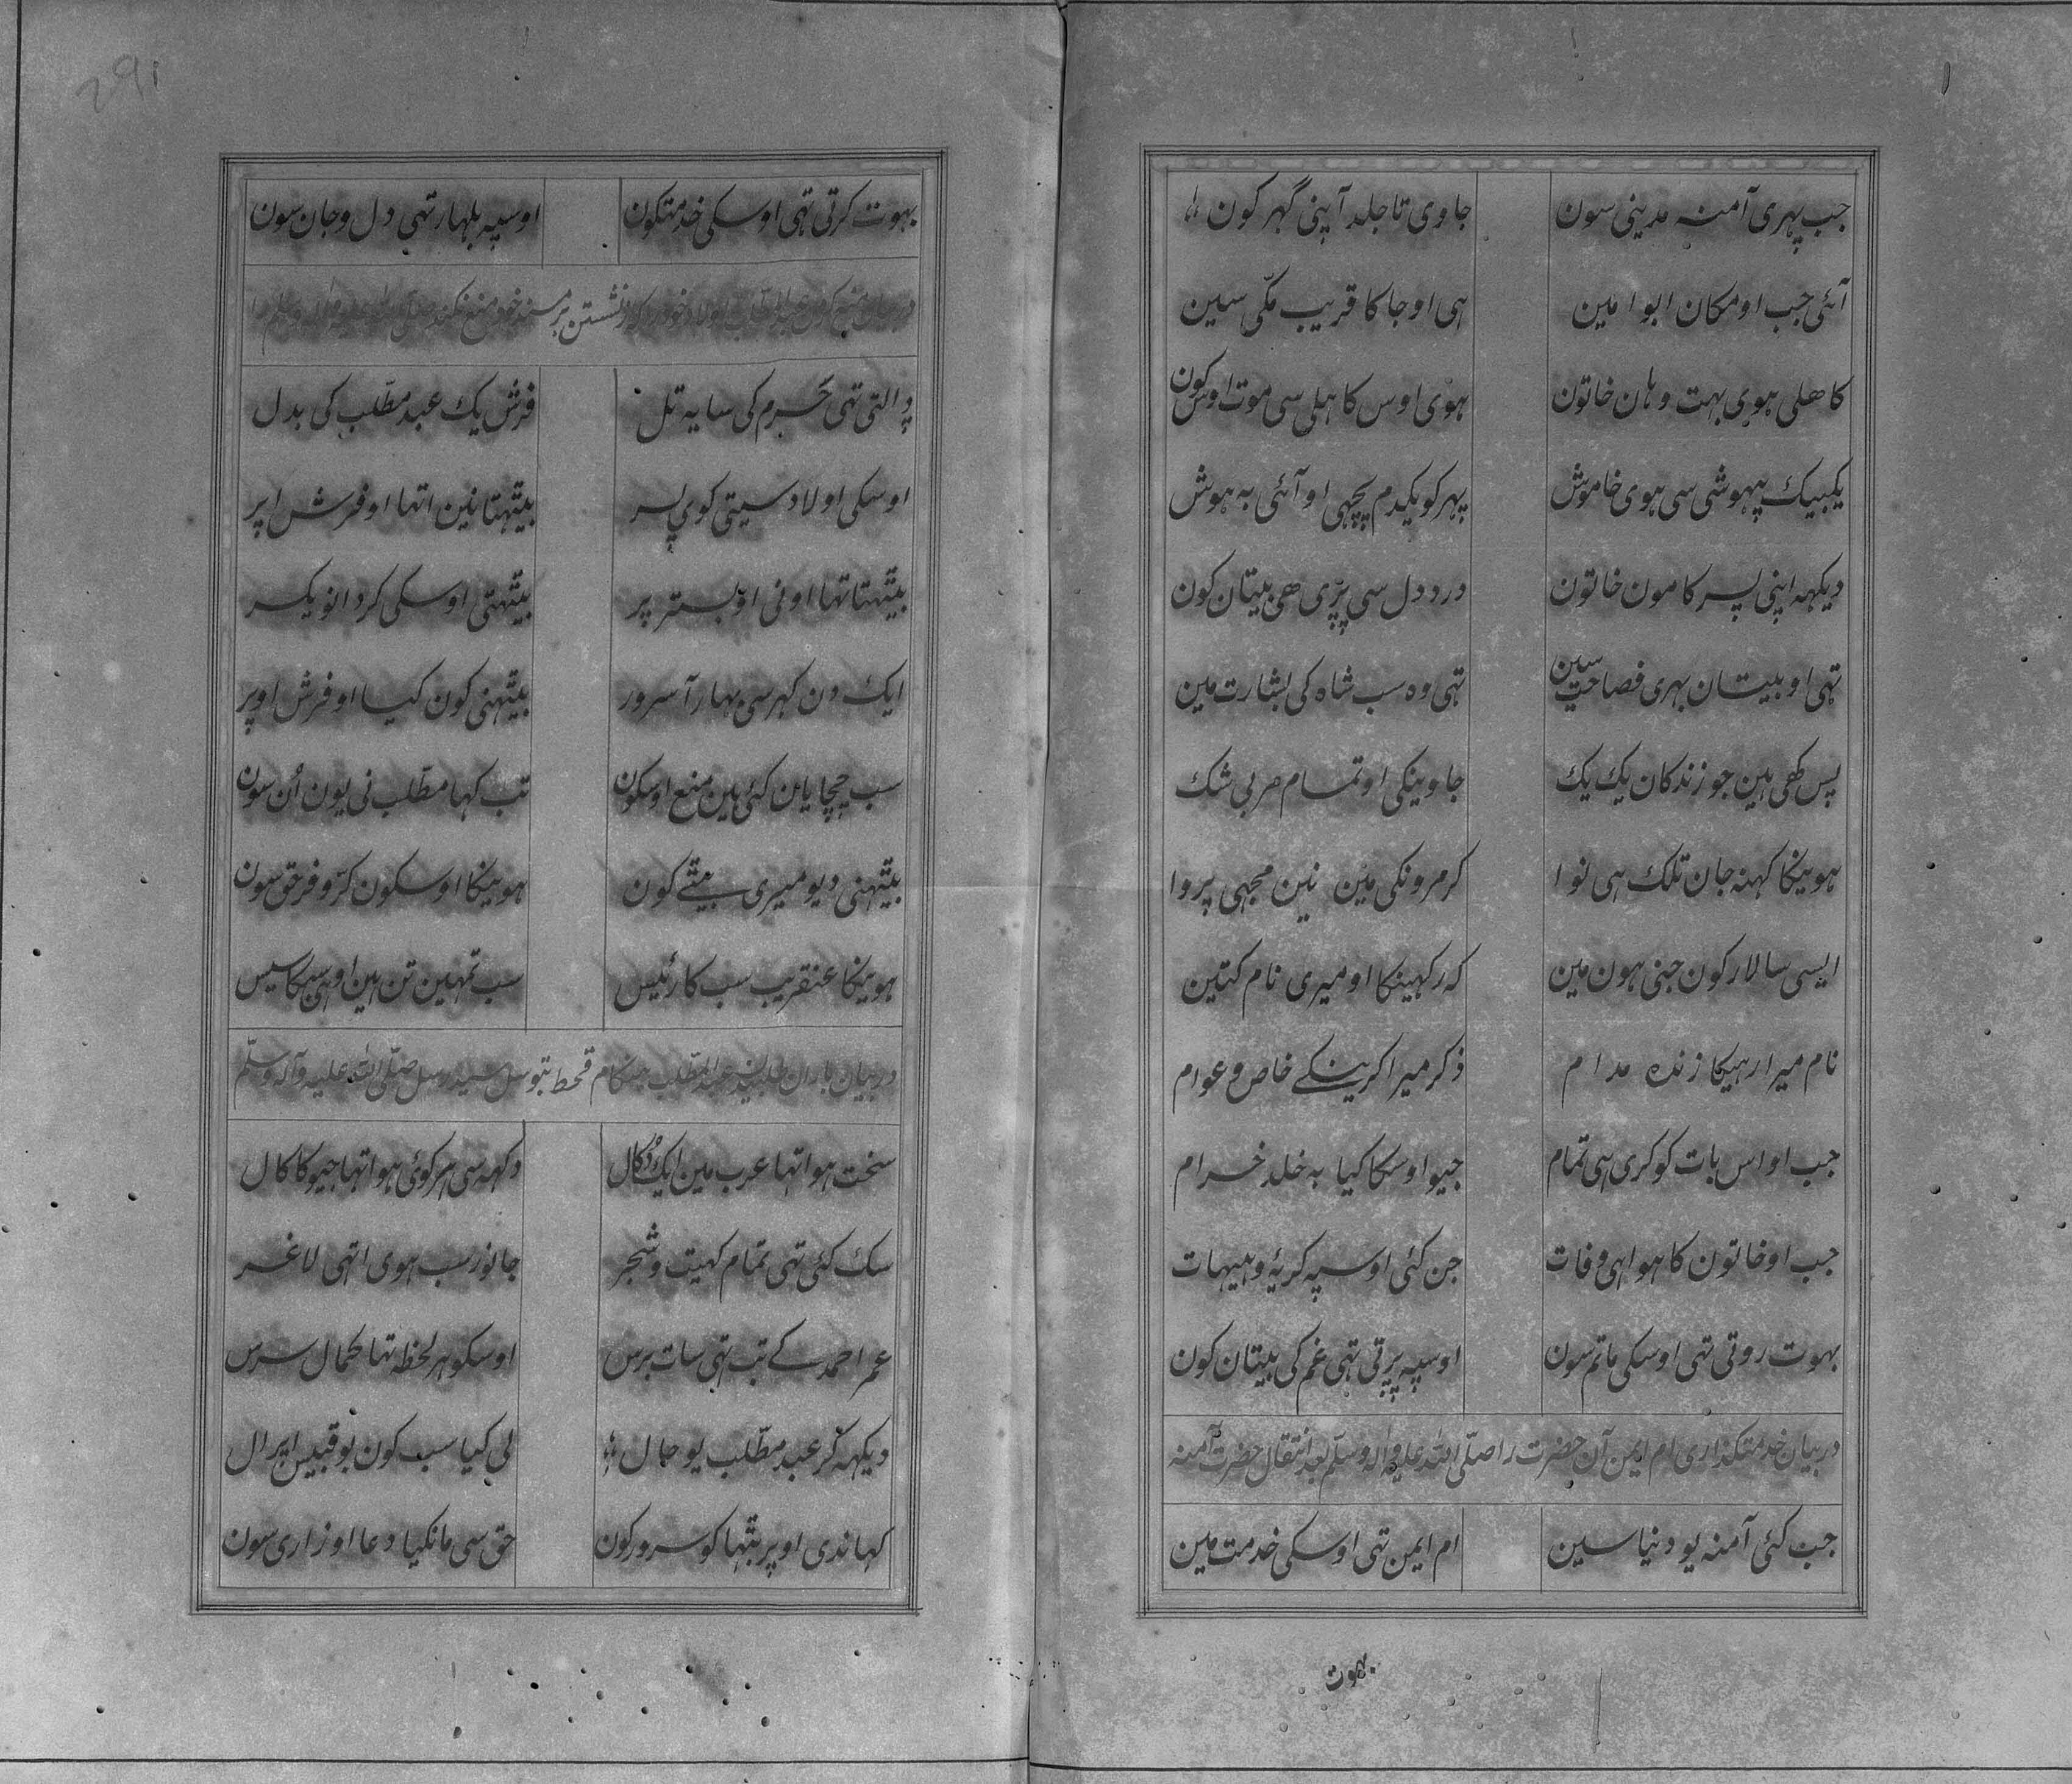 جب پهری آمنہ مدینی سون جاوی تا جلد آپنی گهر کون
آئی جب او مکان ابوا مین هی او جا کا قریب مکّی سین
کاهلی هوی بہت وهان خاتون هوی اوس کاهلی سی موت اوس کون
یکبیک بیهوشی سی هوی خاموش پهر کو یکدم پچهی او آئی به هوش
دیکهہ اپنی پسر کا مون خاتون درد دل سی پڑی هی بیتان کون
تهی او بیتان بهری فصاحت سین تهی وہ سب شاہ کی بشارت مین
پس کهی هین جو زندکان یک یک جاوینکی او تمام مر بی شک
هوینکا کهنہ جان تلک هی نوا کر مرونکی مین نین مجهی پروا
ایسی سالار کون جنی هون مین که رکهینکا او میری نام کتین
نام میرا رهیکا زندہ مدام ذکر میرا کرینکے خاص و عوام
جب او اس بات کو کری هی تمام جیو اوسکا کیا به خلد خرام
جب او خاتون کا هوا هی وفات جن کئی اوسپہ کریۂ و هیهات
بهوت روتی تهی اوسکی ماتم سون اوسپہ پڑتی تهی غم کی بیتان کون
در بیان خدمتکذاری ام ایمن آن حضرت را صلّی اللہ علیہ وآلہ وسلّم بعد انتقال حضرت آمنہ
جب کئی آمنہ یو دنیا سین ام ایمن تهی اوسکی خدمت مین
بهوت
بهوت کرتی تهی اوسکی خدمتکون اوسپہ بلهار تهی دل و جان سون
نشستن بر مسند خود منع نکند
ڈالتی تهی حرم کی سایہ تل فرش یک عبد مطّلب کی بدل
اوسکی اولاد سیتی کوی پسر بیٹهتا نین اتها او فرش اپر
بیٹهتا تها اونی او بستر پر بیٹهتی اوسکی کرد انو یکسر
ایک دن کهر سی بهار آ سرور بیٹهنی کون کیا او فرش اوپر
سب چچایان کئی هین منع اوسکون تب کها مطّلب نی یون اُن سون
بیٹهنی دیو میری بیٹے کون هوینکا اوسکون کرّ و فر حق سون
هوینکا عنقریب سب کا رئیس سب تمهین تن هین او هی سبکا سیس
در بیان باران طلبیدن عبد المطّلب هنکام قحط بتوسل سید رسل صلّی اللہ علیہ وآلہ وسلّم
سخت هوا تها عرب مین ایک دُکال دکهہ سی هر کوئی هوا تها جیو کا کال
سک کئی تهی تمام کهیت و شجر جانور سب هوی اتهی لاغر
عمر احمد کے تب تهی سات برس اوسکو هر لحظہ تها کمال سرس
دیکهہ کر عبد مطّلب یو حال لی کیا سب کون بو قبیس اپرال
کهاندی اوپر بٹها کو سرور کون حق سی مانکیا دعا او زاری سون
291